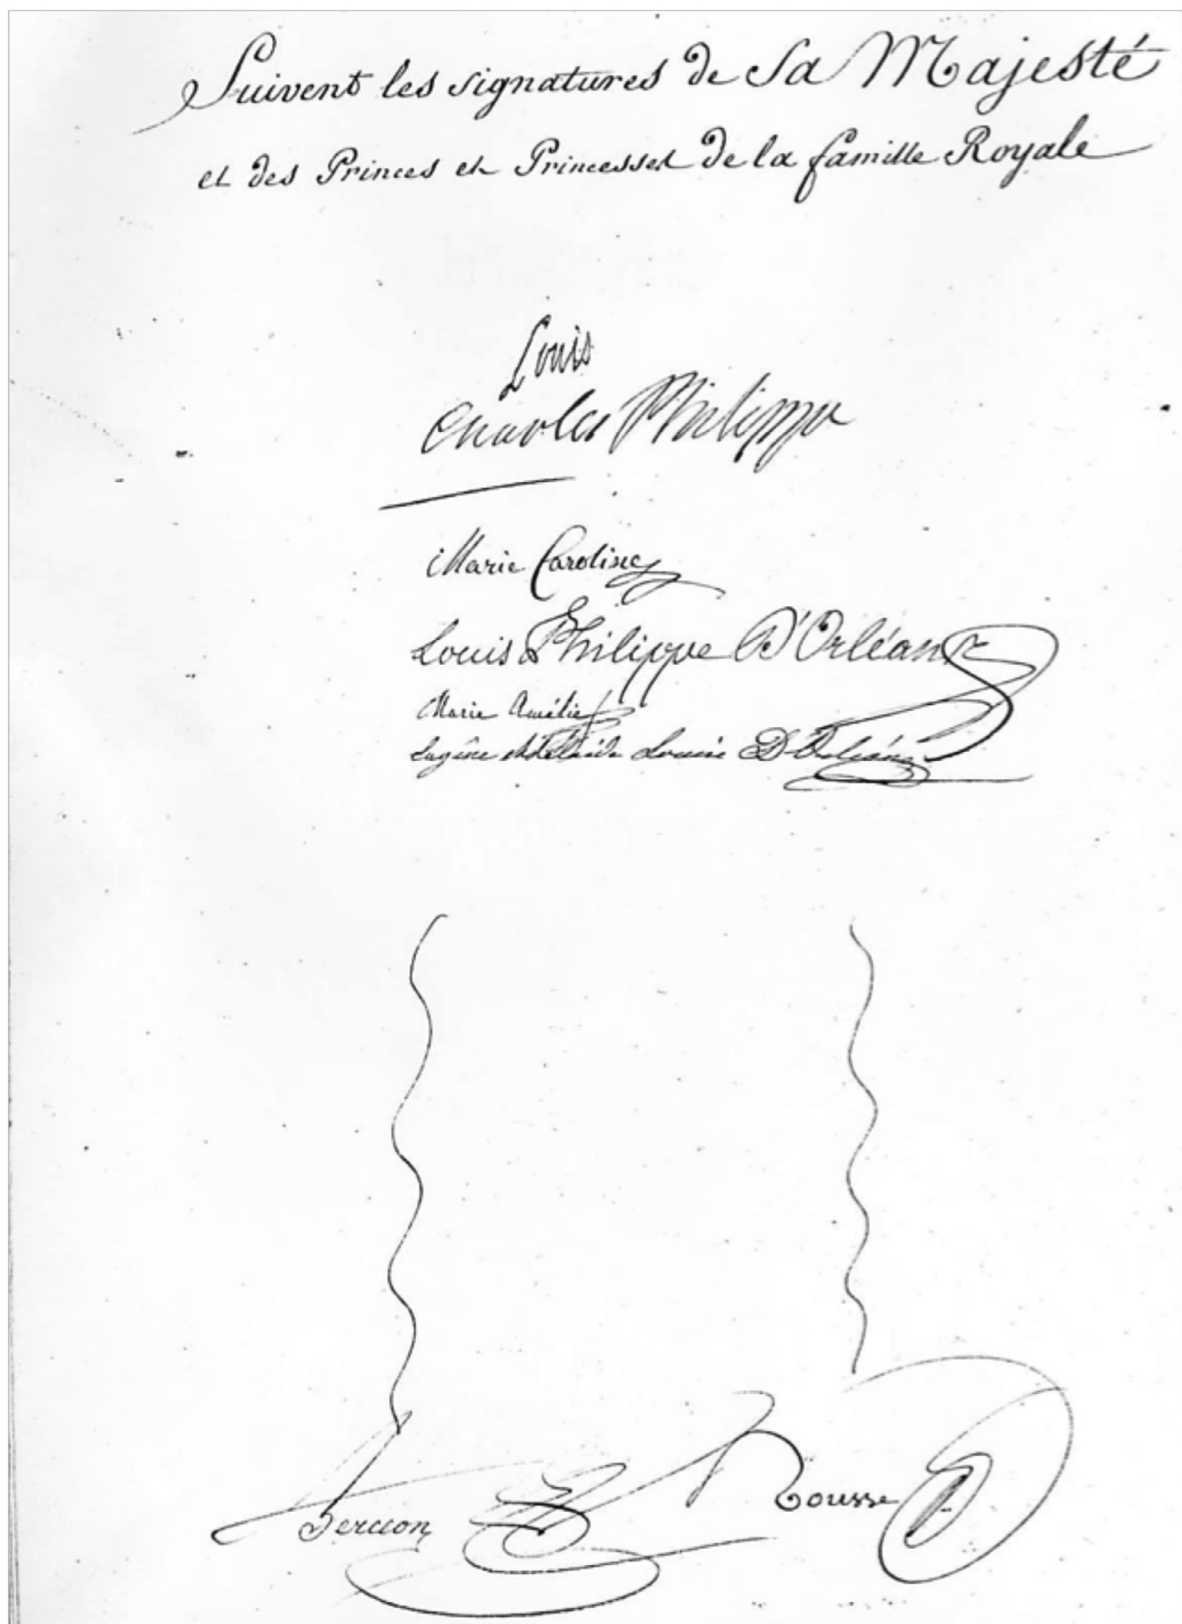 Suivent les signatures de Sa Majesté
et des Princes et Princesses de la famille Royale
Louis
Charles Philippe
Marie Caroline
Louis Philippe D'Orléans
Marie Amélie
Eugêne Adélaïde Louise D'Orléans
Dercion
Rousse